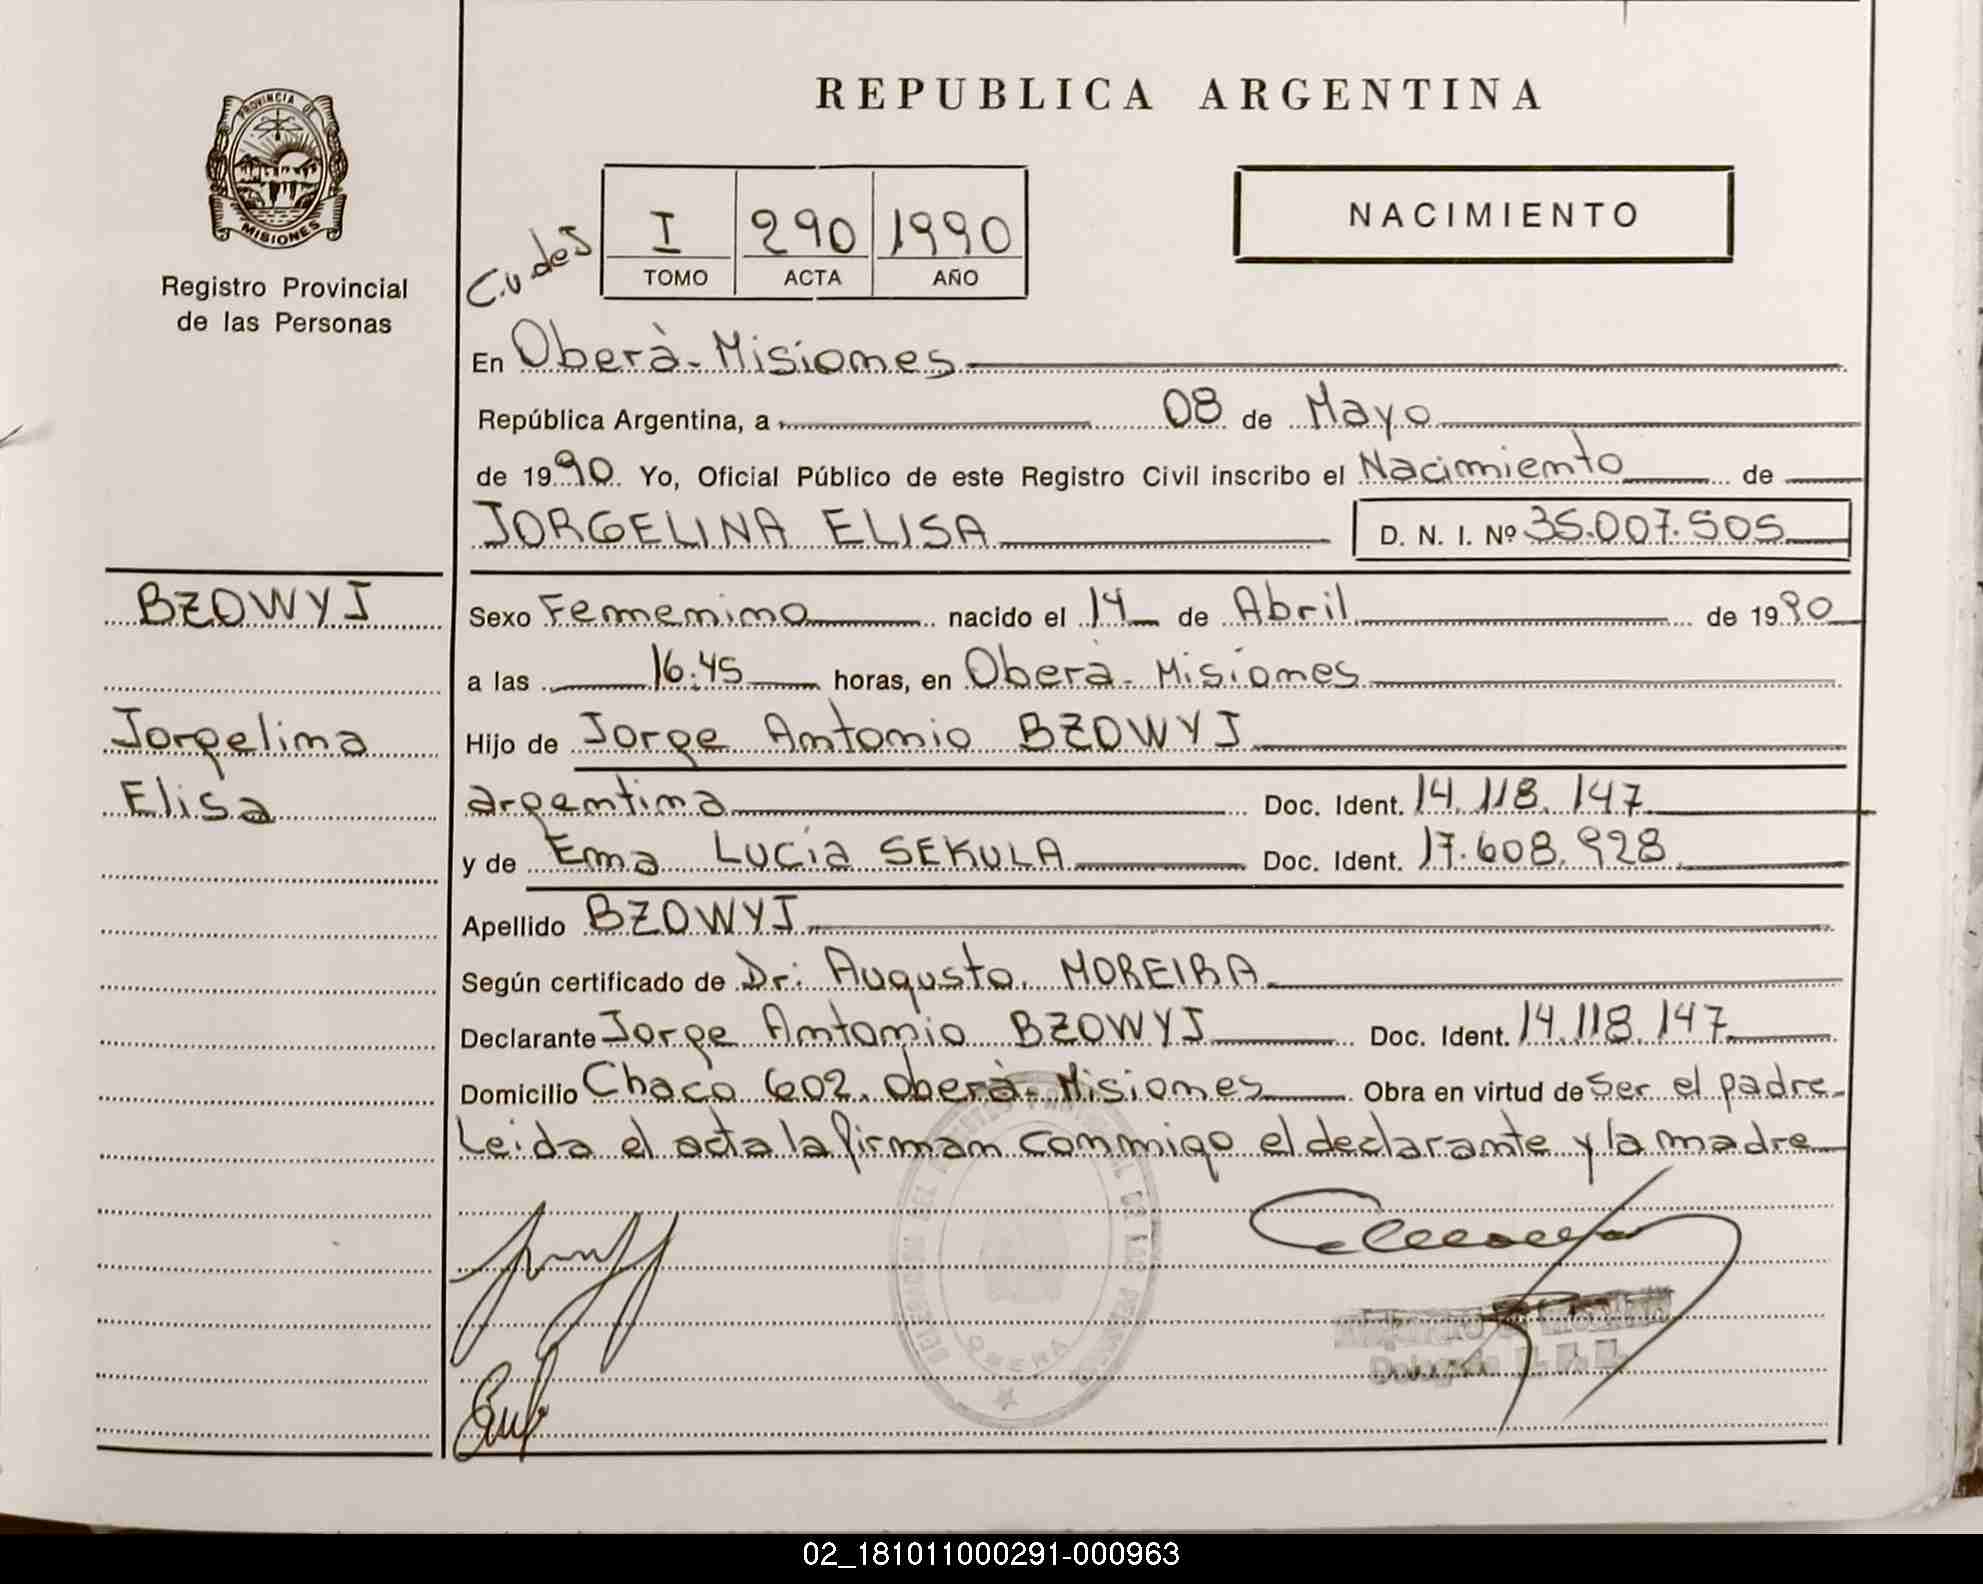 REPUBLICA ARGENTINA
PROVINCIA DE
MISIONES
Registro Provincial
de las Personas
I 290 1990
TOMO ACTA AÑO
NACIMIENTO
En Oberà - Misiones
República Argentina, a 08 de Mayo
de 1990 Yo, Oficial Público de este Registro Civil inscribo el Nacimiento de
JORGELINA ELISA D. N. I. Nº 35.007.505
BZOWYJ
Sexo Femenino nacido el 14 de Abril de 1990
a las 16:45 horas, en Oberà - Misiones
Jorgelina
Hijo de Jorge Antonio BZOWYJ
Elisa
argentina Doc. Ident. 14.118.147
y de Ema Lucía SEKULA Doc. Ident. 17.608.928
Apellido BZOWYJ
Según certificado de Dr: Augusto MOREIRA
Declarante Jorge Antonio BZOWYJ Doc. Ident. 14.118.147
Domicilio Chaco 602. Oberà - Misiones Obra en virtud de Ser el padre
Leida el acta la firman conmigo el declarante y la madre
OBERA
02_181011000291-000963